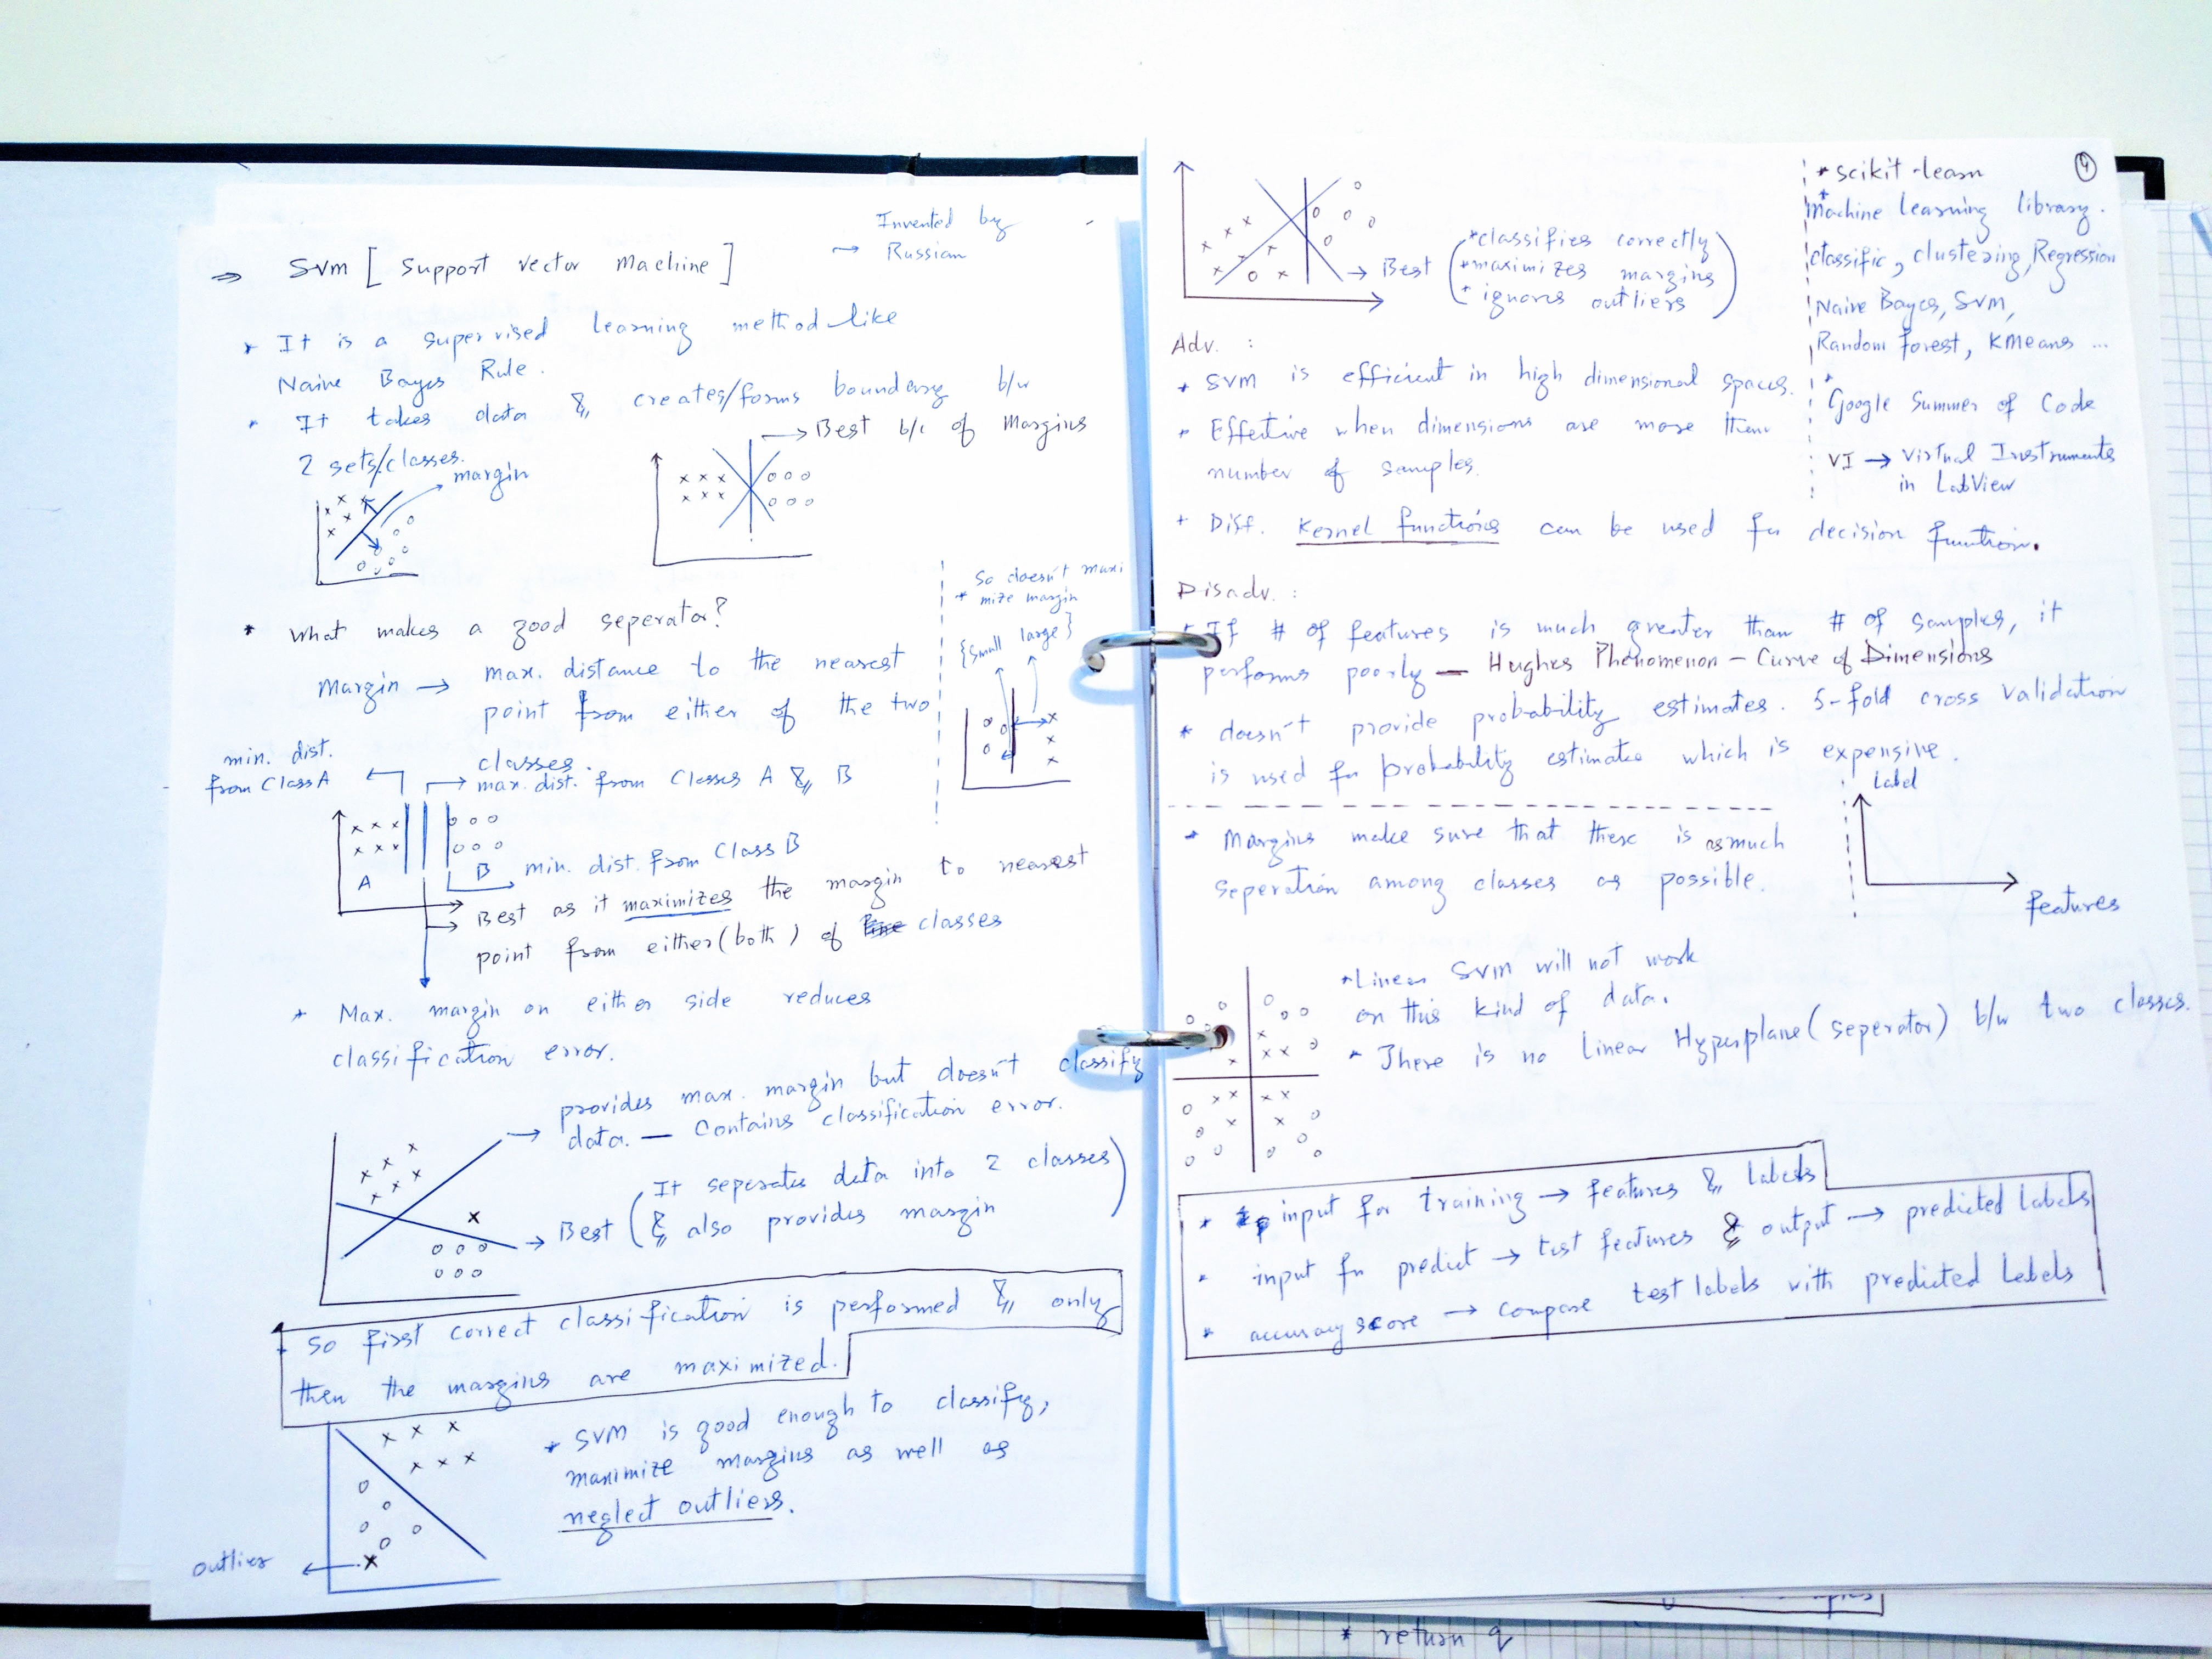 ⇒ SVM [ Support Vector Machine ]
→ Invented by
Russian
* It is a supervised learning method like
Naive Bayes Rule.
* It takes data & creates/forms boundary b/w
2 sets/classes.
margin
→ Best b/c of Margins
* What makes a good seperator?
Margin → max. distance to the nearest
point from either of the two
classes.
So doesn't maxi
* mize margin
{small large}
min. dist.
from Class A
max. dist. from Classes A & B
A
B
min. dist. from Class B
→ Best as it maximizes the margin to nearest
point from either(both) of classes
* Max. margin on either side reduces
classification error.
→ provides max. margin but doesn't classify
data. — Contains classification error.
→ Best ( It seperates data into 2 classes
& also provides margin )
* So first correct classification is performed & only
then the margins are maximized.
* SVM is good enough to classify,
maximize margins as well as
neglect outliers.
outlier
4
→ Best
( *classifies correctly
*maximizes margins
* ignores outliers )
* scikit-learn
* Machine learning library.
classific, clustering, Regression
Naive Bayes, SVM,
Random Forest, KMeans ...
* Google Summer of Code
VI → Virtual Instruments
in LabView
Adv. :
* SVM is efficient in high dimensional spaces.
* Effective when dimensions are more than
number of samples.
* Diff. Kernel functions can be used for decision function.
Disadv. :
* If # of features is much greater than # of samples, it
performs poorly — Hughes Phenomenon – Curve of Dimensions
* doesn't provide probability estimates. 5-fold cross validation
is used for probability estimates which is expensive.
* Margins make sure that there is as much
seperation among classes as possible.
Label
features
* Linear SVM will not work
on this kind of data.
* There is no linear Hyperplane(seperator) b/w two classes.
* input for training → features & labels
* input for predict → test features & output → predicted labels
* accuracy score → compare test labels with predicted Labels
* return q